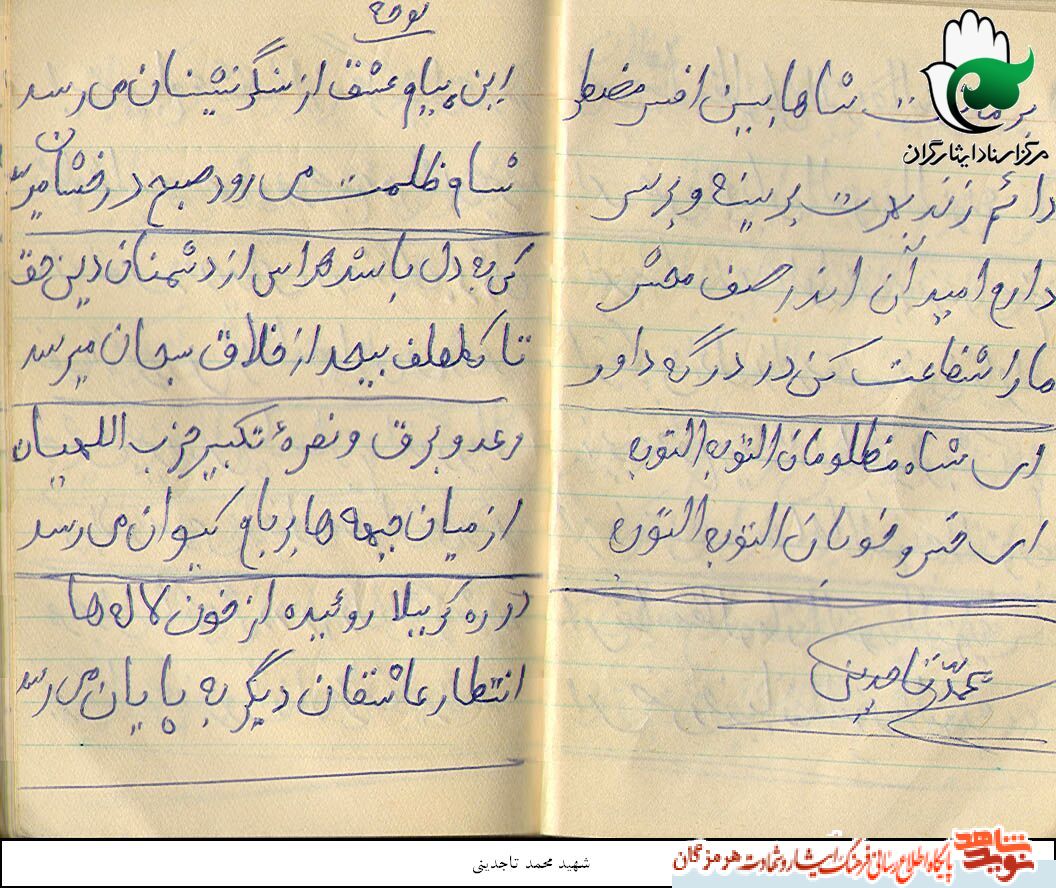 شاها ببین افسر مضطر
دائم زند بر سینه و بر سر
دارم امید آن اندر صف محشر
ما را شفاعت کن در درگه داور
ای شاه مظلومان الغوث الغوث
ای خسرو خوبان الغوث الغوث
محمد تاجدینی
نوحه
این پیام عشق از سنگرنشینان می رسد
شام ظلمت می رود صبح درخشان میرسد
کی به دل باشد هراس از دشمنان دین حق
تا کمک بیحد از خلاق سبحان میرسد
رعد و برق و نعرهٔ تکبیر حزب اللهیان
از میان جبهه ها بر بام کیوان می رسد
در ره کربلا روئیده از خون لاله ها
انتظار عاشقان دیگر به پایان می رسد
مرکز اسناد ایثارگران
شهید محمد تاجدینی
نوید شاهد
پایگاه اطلاع رسانی فرهنگ ایثار و شهادت هرمزگان